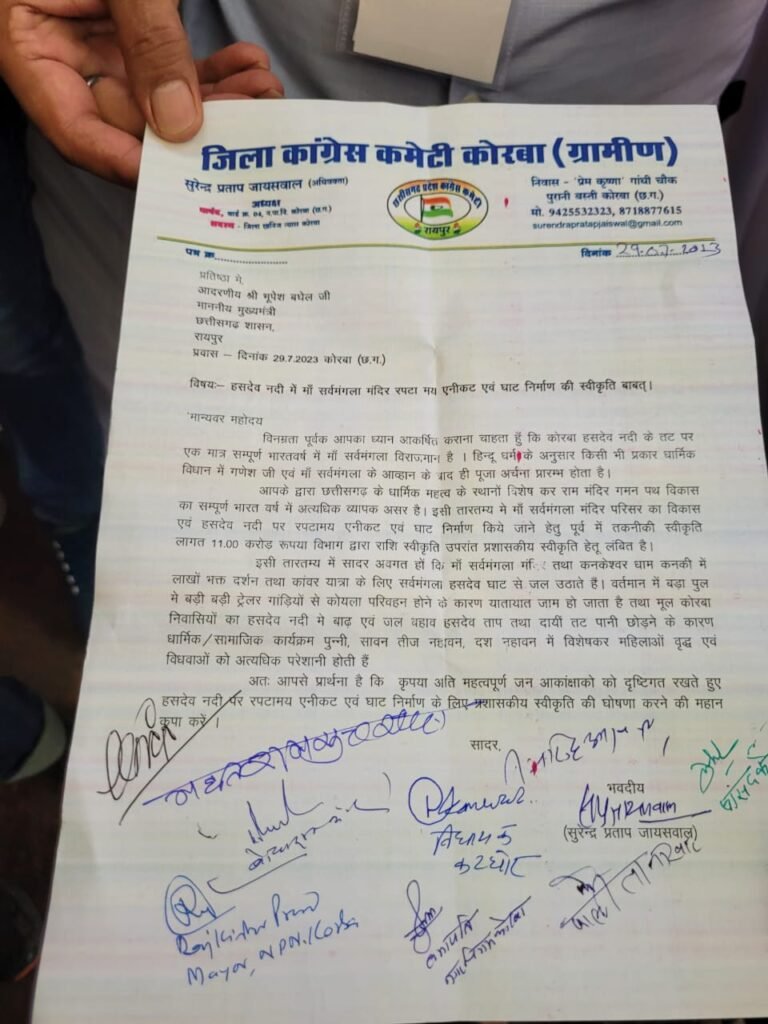 जिला कांग्रेस कमेटी कोरबा (ग्रामीण)
सुरेन्द्र प्रताप जायसवाल (अधिवक्ता)
अध्यक्ष
पार्षद, वार्ड क्र. 04, न.पा.नि. कोरबा (छ.ग.)
सदस्य - जिला खनिज न्यास कोरबा
छत्तीसगढ़ प्रदेश कांग्रेस कमेटी
रायपुर
निवास - 'प्रेम कृष्णा' गांधी चौक
पुरानी बस्ती कोरबा (छ.ग.)
मो. 9425532323, 8718877615
surendrapratapjaiswal@gmail.com
पत्र क्र..................
दिनांक 29.07.2023
प्रतिष्ठा मे,
आदरणीय श्री भूपेश बघेल जी
माननीय मुख्यमंत्री
छत्तीसगढ़ शासन,
रायपुर
प्रवास – दिनांक 29.7.2023 कोरबा (छ.ग.)
विषयः– हसदेव नदी में माँ सर्वमंगला मंदिर रपटा मय एनीकट एवं घाट निर्माण की स्वीकृति बाबत्।
मान्यवर महोदय
विनम्रता पूर्वक आपका ध्यान आकर्षित कराना चाहता हुँ कि कोरबा हसदेव नदी के तट पर
एक मात्र सम्पूर्ण भारतवर्ष में माँ सर्वमंगला विराजमान है । हिन्दू धर्म के अनुसार किसी भी प्रकार धार्मिक
विधान में गणेश जी एवं माँ सर्वमंगला के आव्हान के बाद ही पूजा अर्चना प्रारम्भ होता है।
आपके द्वारा छत्तीसगढ़ के धार्मिक महत्व के स्थानों विशेष कर राम मंदिर गमन पथ विकास
का सम्पूर्ण भारत वर्ष में अत्यधिक व्यापक असर है। इसी तारतम्य मे माँ सर्वमंगला मंदिर परिसर का विकास
एवं हसदेव नदी पर रपटामय एनीकट एवं घाट निर्माण किये जाने हेतु पूर्व में तकनीकी स्वीकृति
लागत 11.00 करोड़ रूपया विभाग द्वारा राशि स्वीकृति उपरांत प्रशासकीय स्वीकृति हेतू लंबित है।
इसी तारतम्य में सादर अवगत हों कि माँ सर्वमंगला मंदिर तथा कनकेश्वर धाम कनकी में
लाखों भक्त दर्शन तथा कांवर यात्रा के लिए सर्वमंगला हसदेव घाट से जल उठाते हैं। वर्तमान में बड़ा पुल
मे बड़ी बड़ी ट्रेलर गाड़ियों से कोयला परिवहन होने के कारण यातायात जाम हो जाता है तथा मूल कोरबा
निवासियों का हसदेव नदी मे बाढ़ एवं जल बहाव हसदेव ताप तथा दायीं तट पानी छोड़ने के कारण
धार्मिक/सामाजिक कार्यक्रम पुन्नी, सावन तीज नहावन, दश नहावन में विशेषकर महिलाओं वृद्ध एवं
विधवाओं को अत्यधिक परेशानी होती हैं
अतः आपसे प्रार्थना है कि कृपया अति महत्वपूर्ण जन आकांक्षाको को दृष्टिगत रखते हुए
हसदेव नदी पर रपटामय एनीकट एवं घाट निर्माण के लिए प्रशासकीय स्वीकृति की घोषणा करने की महान
कृपा करें ।
सादर,
भवदीय
(सुरेन्द्र प्रताप जायसवाल)
विधायक
कटघोरा
Mayor, NPN. Korba
सभापति